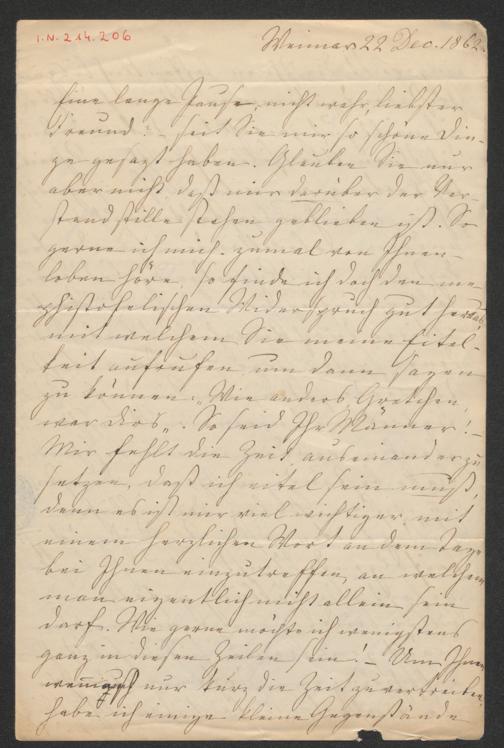 I.N. 214.206
Weimar 22 Dec. 1862.
Eine lange Pause, nicht wahr, liebster
Freund: – seit Sie mir so schöne Din-
ge gesagt haben. Glauben Sie nur
aber nicht daß mir darüber der Ver-
stand stille stehen geblieben ist. So
gerne ich mich zumal von Ihnen
loben höre, so finde ich doch den me-
phistofelischen Widerspruch gut heraus,
mit welchem Sie meine Eitel-
keit aufrufen um dann sagen
zu können: „Wie anders Gretchen,
war dirs„. So seid Ihr Männer! –
Mir fehlt die Zeit auseinander zu
setzen, daß ich eitel sein muß,
denn es ist mir viel wichtiger mit
einem herzlichen Wort an dem Tage
bei Ihnen einzutreffen, an welchem
man eigentlich nicht allein sein
darf. Wie gerne möchte ich wenigstens
ganz in diesen Zeilen sein! – Um Ihnen
wenn auch nur kurz die Zeit zu vertreiben,
habe ich einige kleine Gegenstände